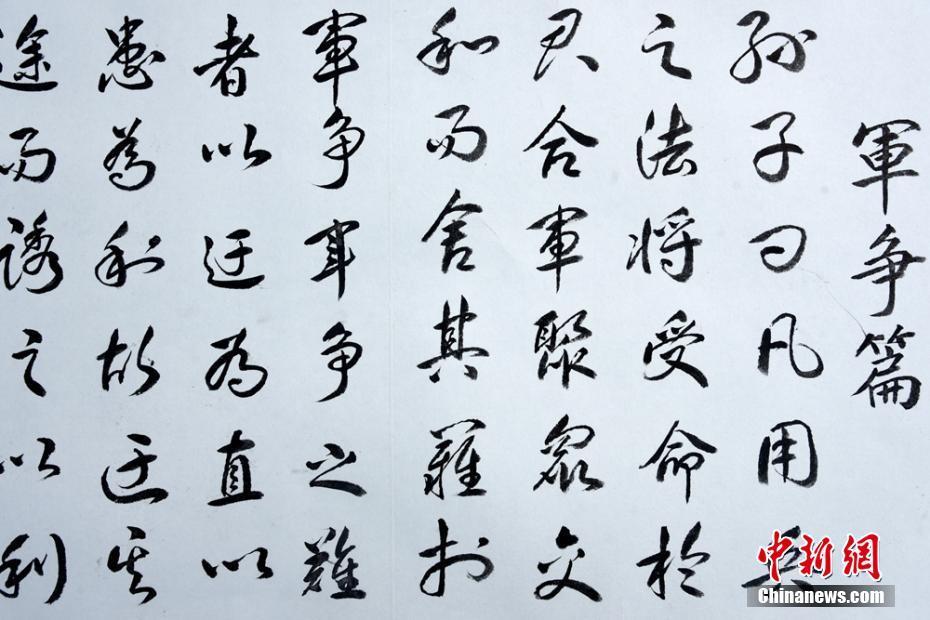 軍争篇
孫子曰凡用兵
之法将受命於
君合軍聚衆交
和而舍其難扵
軍争軍争之難
者以迂為直以
患為利故迂其
途而誘之以利
中新網
Chinanews.com